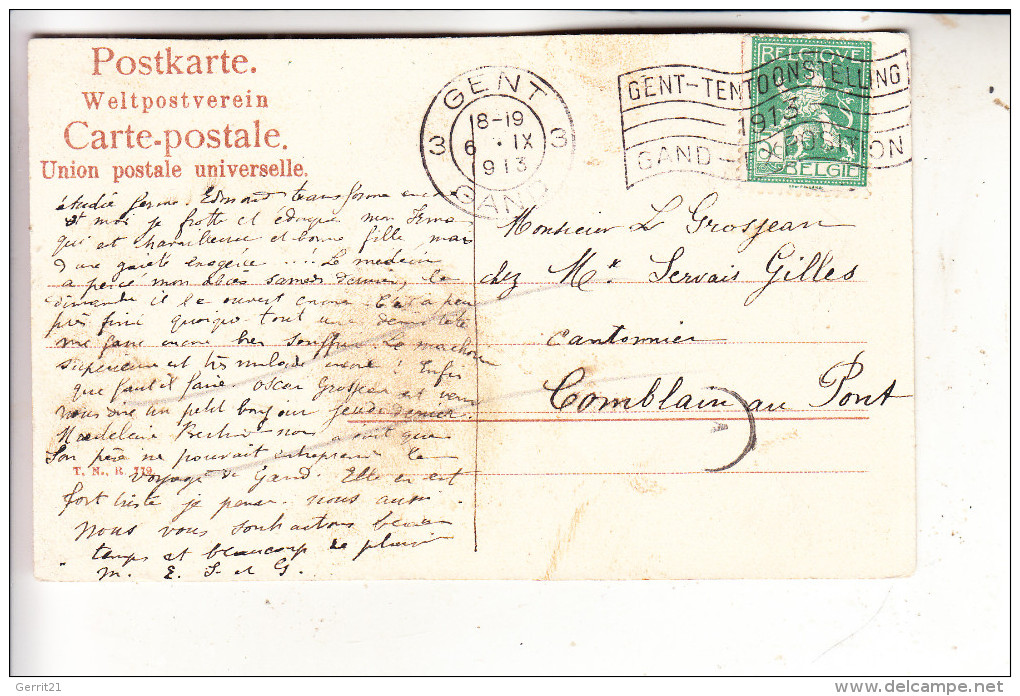 Postkarte.
Weltpostverein
Carte-postale.
Union postale universelle.
GENT
3 18-19 3
6 IX
913
GAND
GENT-TENTOONSTELLING
1913
GAND - EXPOSITION
BELGIQUE
BELGIË
étudie ferme. Edmond transforme
et moi je frotte et éduque mon Irma
qui est et bonne fille mais
d'une gaieté ...! Le médecin
a percé mon abcès samedi dernier, le
dimanche il l'a ouvert encore. C'est à peu
près fini quoique tout une demi tête
me fasse encore bien souffrir. La machoire
supérieure est très malade encore! Enfin
que faut il faire. Oscar Grosjean est venu
nous dire un petit bonjour jeudi dernier.
Madeleine nous a écrit que
son père ne pouvait entreprendre le
T. N., R. 119
voyage de Gand. Elle en est
fort triste je pense. nous aussi.
Nous vous souhaitons beau
temps et beaucoup de plaisir
M. E. S. et G.
Monsieur L Grosjean
chez Mr Servais Gilles
Cantonnier
Comblain au Pont
Gerrit21
www.delcampe.net